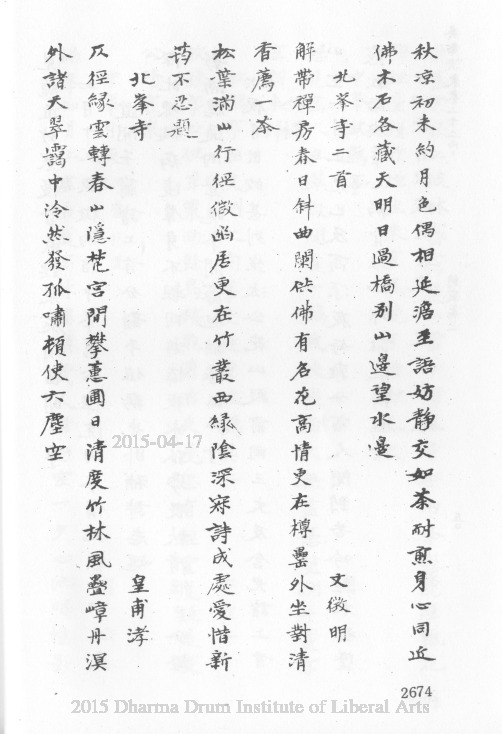 秋凉初未約月色偶相延澹至語妨静交如茶耐煎身心同近
佛木石各藏天明日過橋別山邊望水邊
北峯寺二首 文徵明
解帶禪房春日斜曲闌供佛有名花高情更在樽罍外坐對清
香薦茶
松葉滿山行徑微幽居更在竹叢西緑陰深寂詩成處愛惜新
筠不忍題
北峯寺 皇甫涍
仄徑緣雲轉春山隱梵宮間攀蕙圃日清度竹林風疊嶂丹溟
外諸天翠靄中泠然發孤嘯頓使六塵空
2674
2015-04-17
2015 Dharma Drum Institute of Liberal Arts